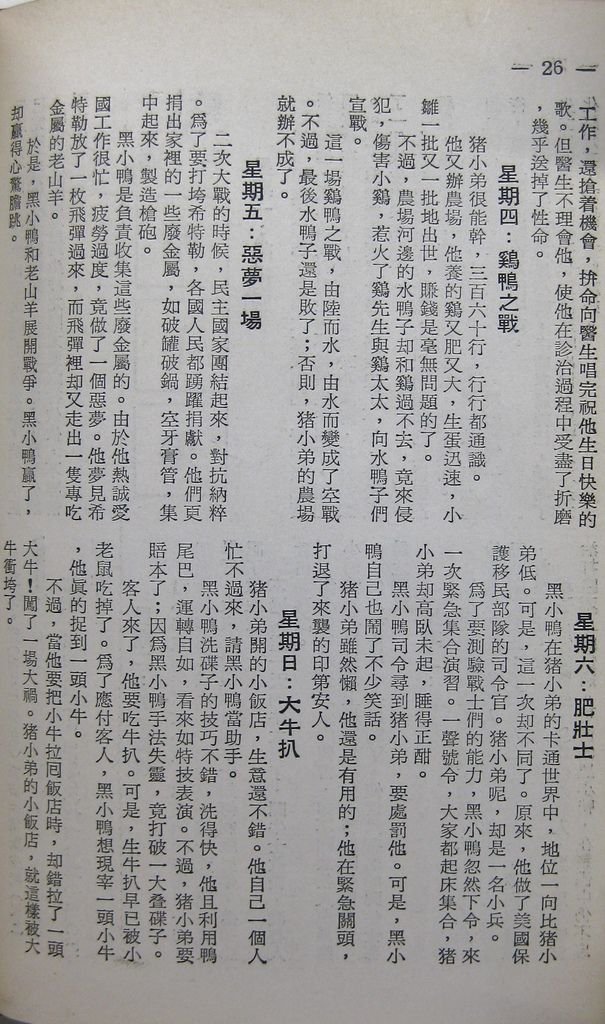 — 26 —
工作，還搶着機會，拚命向醫生唱完祝他生日快樂的
歌。但醫生不理會他，使他在診治過程中受盡了折磨
，幾乎送掉了性命。
星期四：鷄鴨之戰
猪小弟很能幹，三百六十行，行行都通識。
他又辦農場，他養的鷄又肥又大，生蛋迅速，小
雛一批又一批地出世，賺錢是毫無問題的了。
不過，農場河邊的水鴨子却和鷄過不去，竟來侵
犯，傷害小鷄，惹火了鷄先生與鷄太太，向水鴨子們
宣戰。
這一場鷄鴨之戰，由陸而水，由水而變成了空戰
。不過，最後水鴨子還是敗了；否則，猪小弟的農場
就辦不成了。
星期五：惡夢一場
二次大戰的時候，民主國家團結起來，對抗納粹
。爲了要打垮希特勒，各國人民都踴躍捐獻。他們更
捐出家裡的一些廢金屬，如破罐破鍋，空牙膏管，集
中起來，製造槍砲。
黑小鴨是負責收集這些廢金屬的。由於他熱誠愛
國工作很忙，疲勞過度，竟做了一個惡夢。他夢見希
特勒放了一枚飛彈過來，而飛彈裡却又走出一隻專吃
金屬的老山羊。
於是，黑小鴨和老山羊展開戰爭。黑小鴨贏了，
却贏得心驚膽跳。
星期六：肥壯士
黑小鴨在猪小弟的卡通世界中，地位一向比猪小
弟低。可是，這一次却不同了。原來，他做了美國保
護移民部隊的司令官。猪小弟呢，却是一名小兵。
爲了要測驗戰士們的能力，黑小鴨忽然下令，來
一次緊急集合演習。一聲號令，大家都起床集合，猪
小弟却高臥未起，睡得正酣。
黑小鴨司令尋到猪小弟，要處罰他。可是，黑小
鴨自己也鬧了不少笑話。
猪小弟雖然懶，他還是有用的；他在緊急關頭，
打退了來襲的印第安人。
星期日：大牛扒
猪小弟開的小飯店，生意還不錯。他自己一個人
忙不過來，請黑小鴨當助手。
黑小鴨洗碟子的技巧不錯，洗得快，他且利用鴨
尾巴，運轉自如，看來如特技表演。不過，猪小弟要
賠本了；因爲黑小鴨手法失靈，竟打破一大叠碟子。
客人來了，他要吃牛扒。可是，生牛扒早已被小
老鼠吃掉了。爲了應付客人，黑小鴨想現宰一頭小牛
，他眞的捉到一頭小牛。
不過，當他要把小牛拉囘飯店時，却錯拉了一頭
大牛！闖了一場大禍。猪小弟的小飯店，就這樣被大
牛衝垮了。